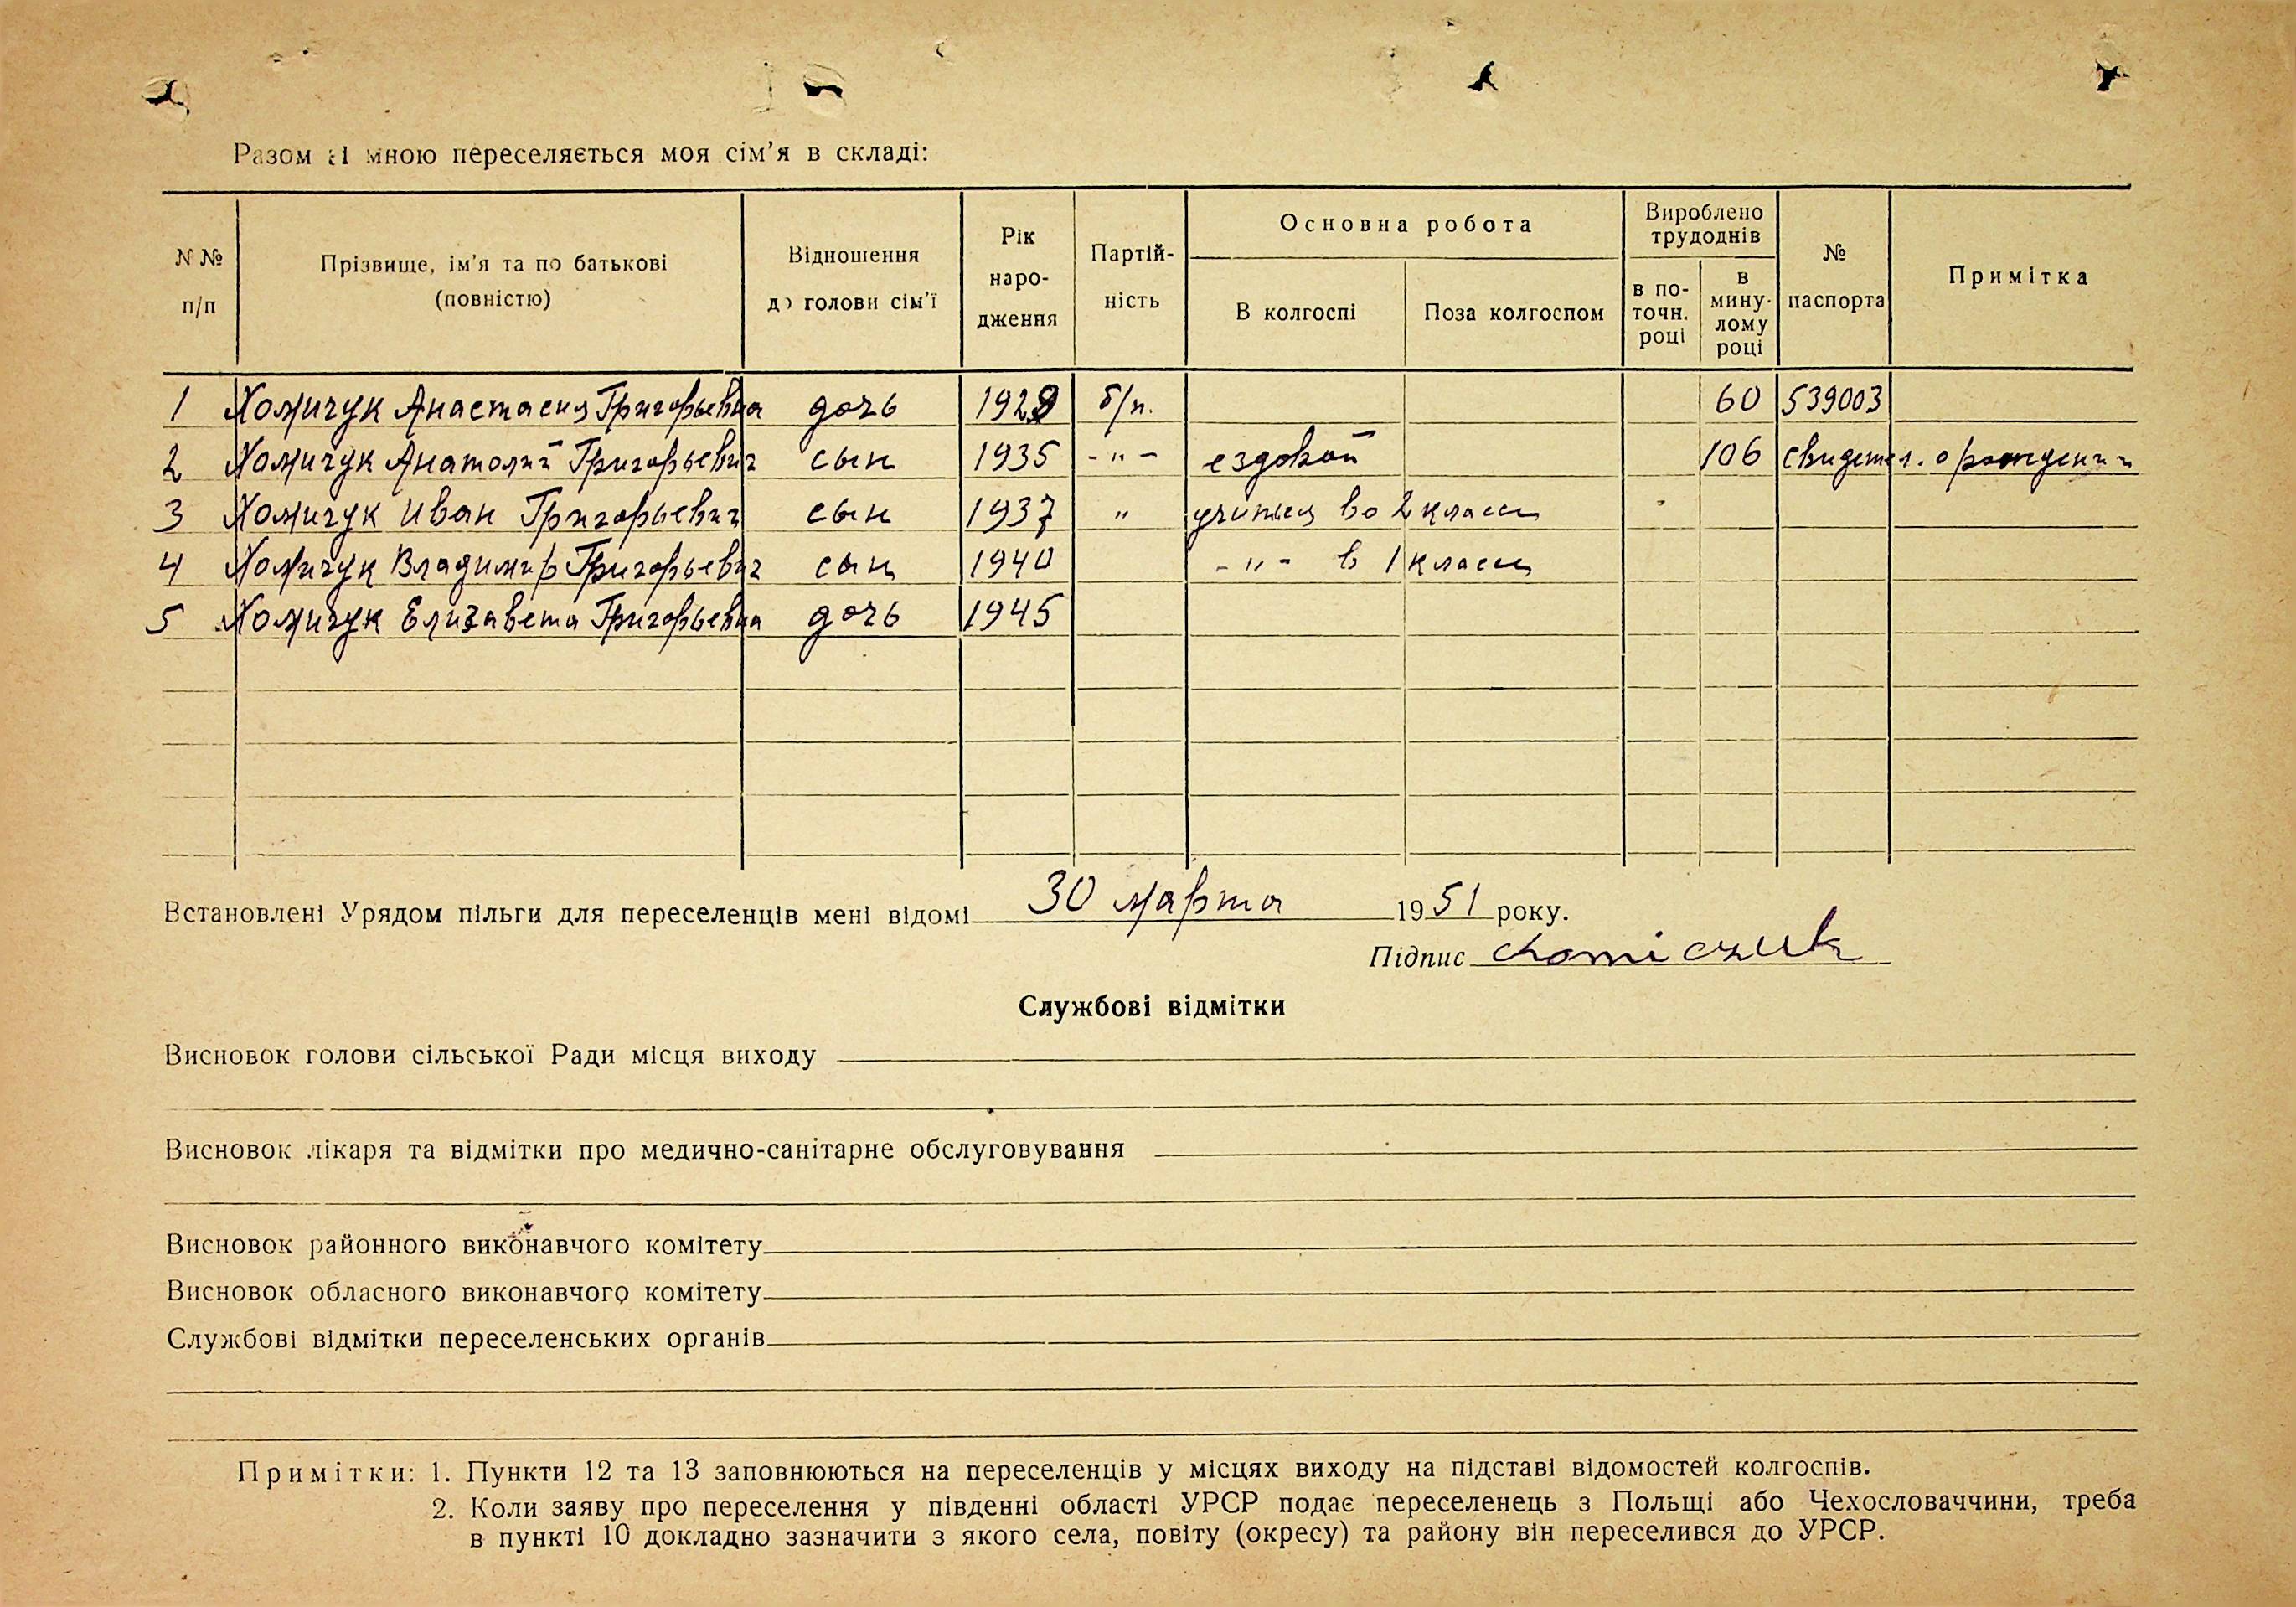 Разом зі мною переселяється моя сім’я в складі:
N №
п/п
Прізвище, ім’я та по батькові
(повністю)
Відношення
до голови сім’ї
Рік
наро-
дження
Партій-
ність
Основна робота
В колгоспі
Поза колгоспом
Вироблено
трудоднів
в по-
точн.
році
в
мину-
лому
році
№
паспорта
Примітка
1 Хомичук Анастасия Григорьевна дочь 1929 б/п. 60 539003
2 Хомичук Анатолий Григорьевич сын 1935 -"- ездовой 106 свидетел. о рождении
3 Хомичук Иван Григорьевич сын 1937 " учиться во 2 классе
4 Хомичук Владимир Григорьевич сын 1940 -"- в 1 классе
5 Хомичук Елизавета Григорьевна дочь 1945
Встановлені Урядом пільги для переселенців мені відомі 30 марта 1951 року.
Підпис Chomiczuk
Службові відмітки
Висновок голови сільської Ради місця виходу
Висновок лікаря та відмітки про медично-санітарне обслуговування
Висновок районного виконавчого комітету
Висновок обласного виконавчого комітету
Службові відмітки переселенських органів
Примітки: 1. Пункти 12 та 13 заповнюються на переселенців у місцях виходу на підставі відомостей колгоспів.
2. Коли заяву про переселення у південні області УРСР подає переселенець з Польщі або Чехословаччини, треба
в пункті 10 докладно зазначити з якого села, повіту (окресу) та району він переселився до УРСР.